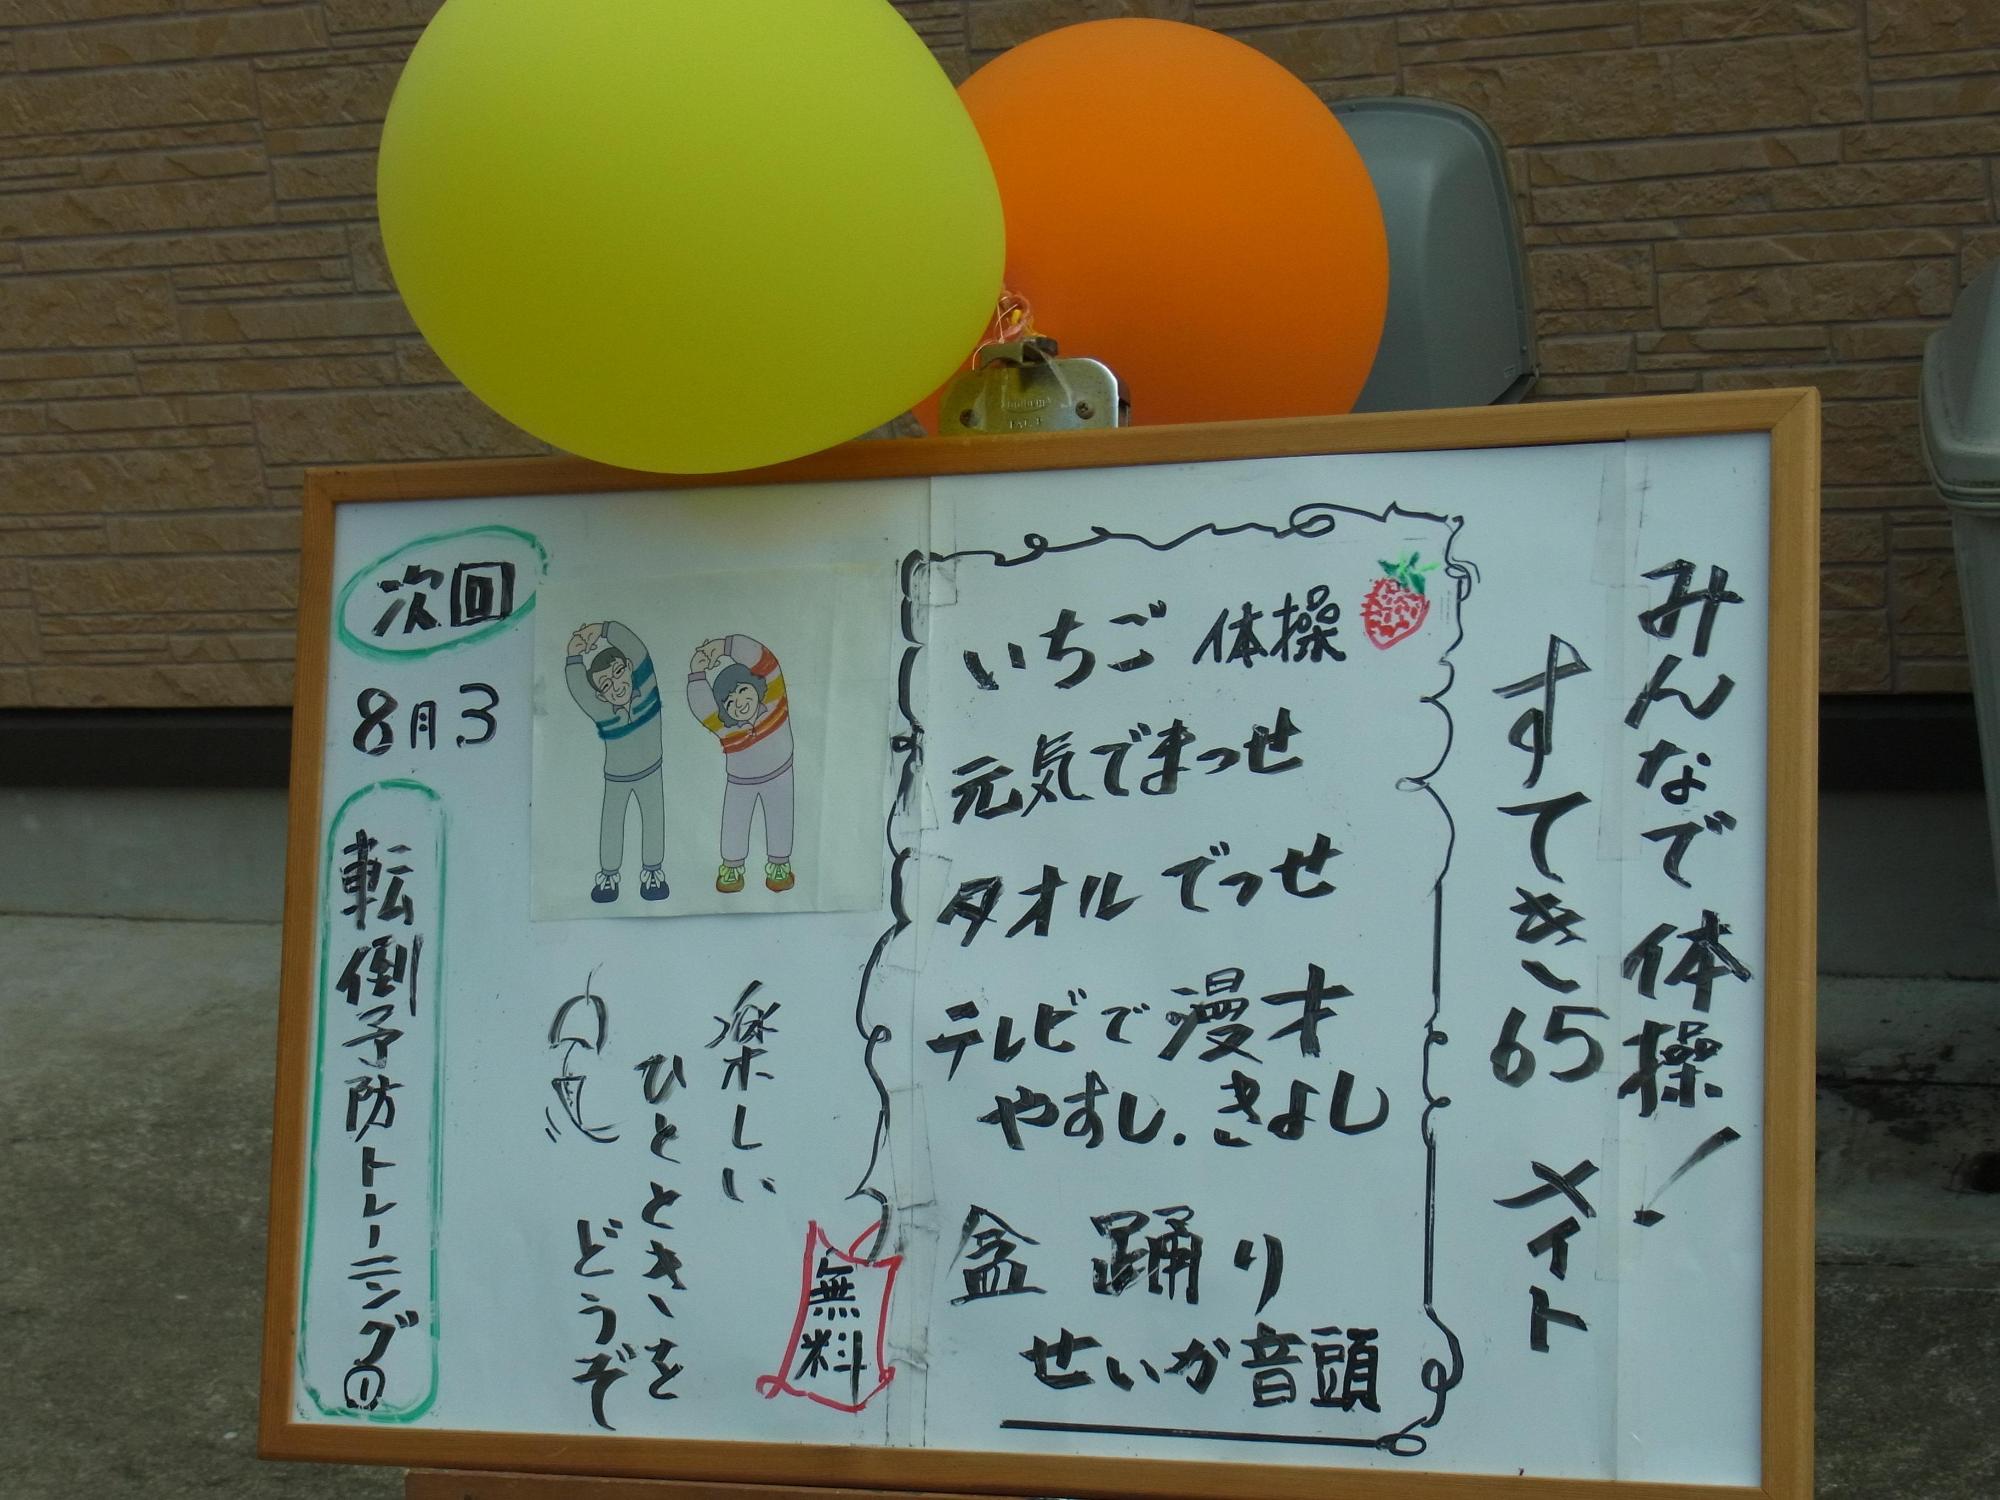 みんなで体操!
すてき65メイト
いちご体操
元気でまっせ
タオルでっせ
テレビで漫才
やすし.きよし
盆踊り
せいか音頭
無料
楽しい
ひとときを
どうぞ
次回
8月3
転倒予防トレーニング①